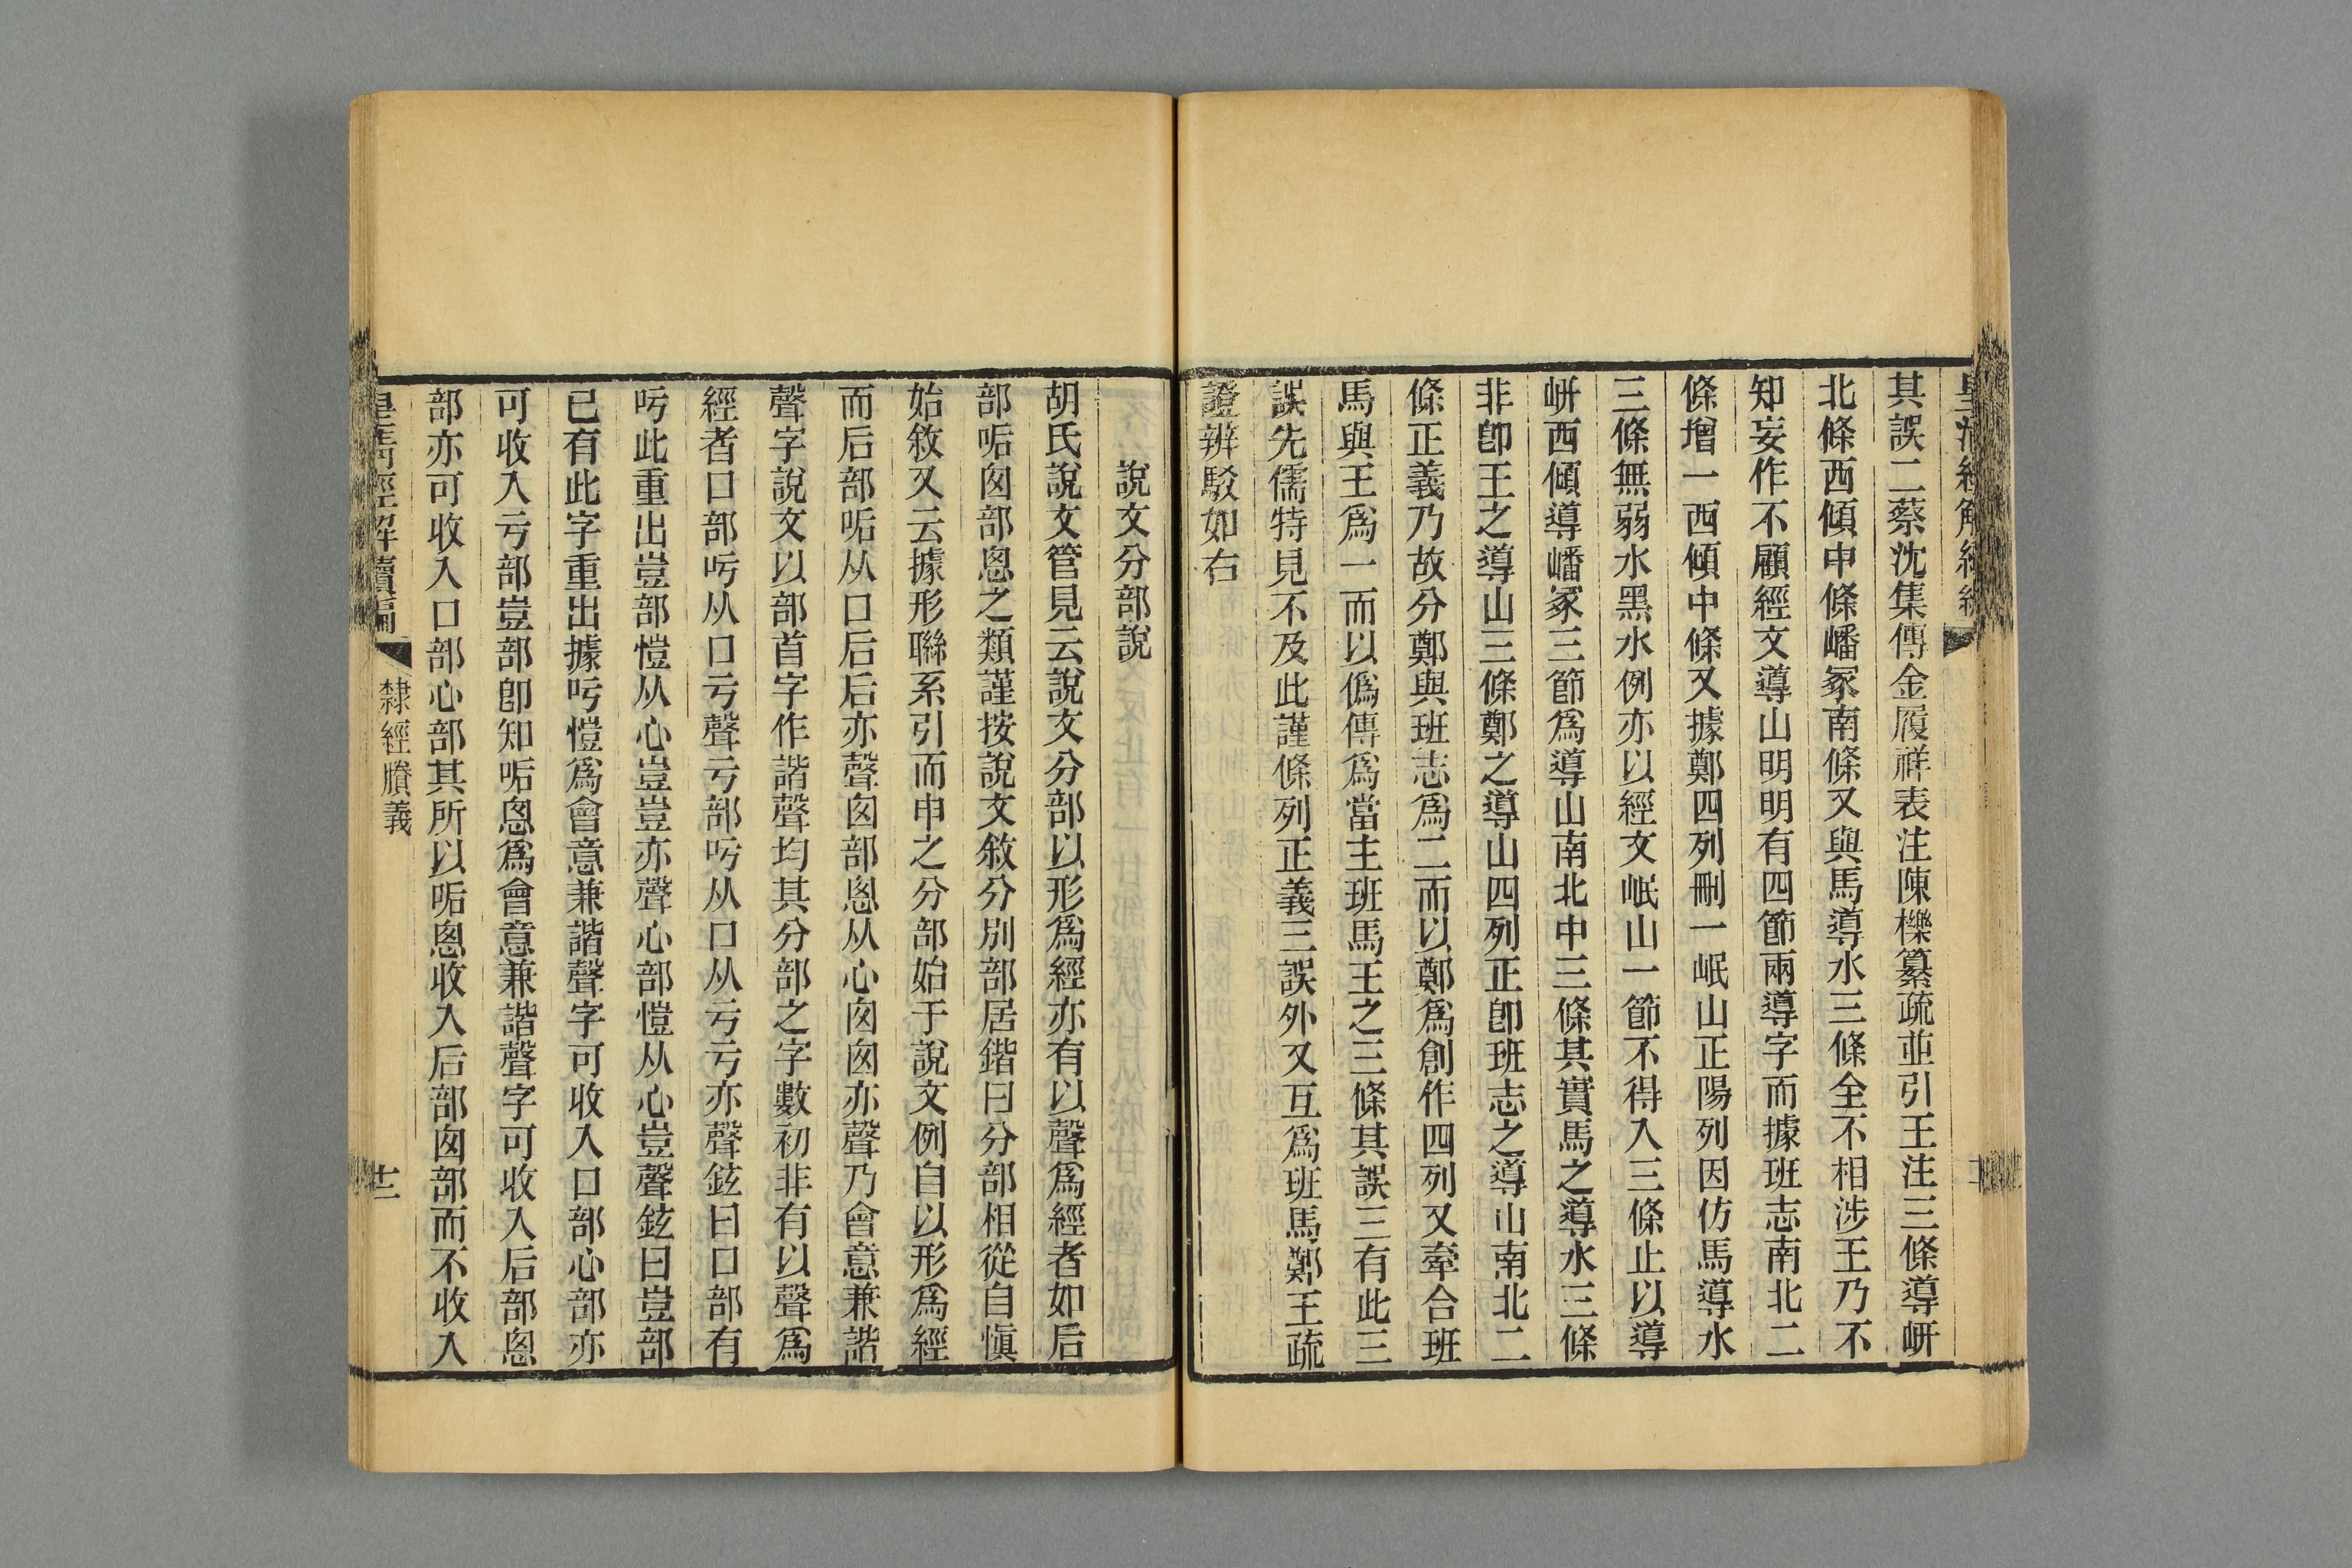 其誤二蔡沈集傳金履祥表注陳櫟纂疏並引王注三條導岍
北條西傾中條嶓冢南條又與馬導水三條全不相涉王乃不
知妄作不顧經文導山明明有四節兩導字而據班志南北二
條增一西傾中條又據鄭四列刪一岷山正陽列因仿馬導水
三條無弱水黑水例亦以經文岷山一節不得入三條止以導
岍西傾導嶓冢三節爲導山南北中三條其實馬之導水三條
非卽王之導山三條鄭之導山四列正卽班志之導山南北二
條正義乃故分鄭與班志爲二而以鄭爲創作四列又牽合班
馬與王爲一而以僞傳爲當主班馬王之三條其誤三有此三
誤先儒特見不及此謹條列正義三誤外又互爲班馬鄭王疏
證辨駁如右
說文分部說
胡氏說文管見云說文分部以形爲經亦有以聲爲經者如后
部㖃囪部恖之類謹按說文敘分別部居鍇曰分部相從自愼
始敘又云據形聯系引而申之分部始于說文例自以形爲經
而后部㖃从口后后亦聲囪部恖从心囪囪亦聲乃會意兼諧
聲字說文以部首字作諧聲均其分部之字數初非有以聲爲
經者口部吁从口亏聲亏部吁从口从亏亏亦聲鉉曰口部有
吁此重出豈部愷从心豈豈亦聲心部愷从心豈聲鉉曰豈部
已有此字重出據吁愷爲會意兼諧聲字可收入口部心部亦
可收入亏部豈部卽知㖃恖爲會意兼諧聲字可收入后部恖
部亦可收入口部心部其所以㖃恖收入后部囪部而不收入
皇淸經解續編
隸經賸義